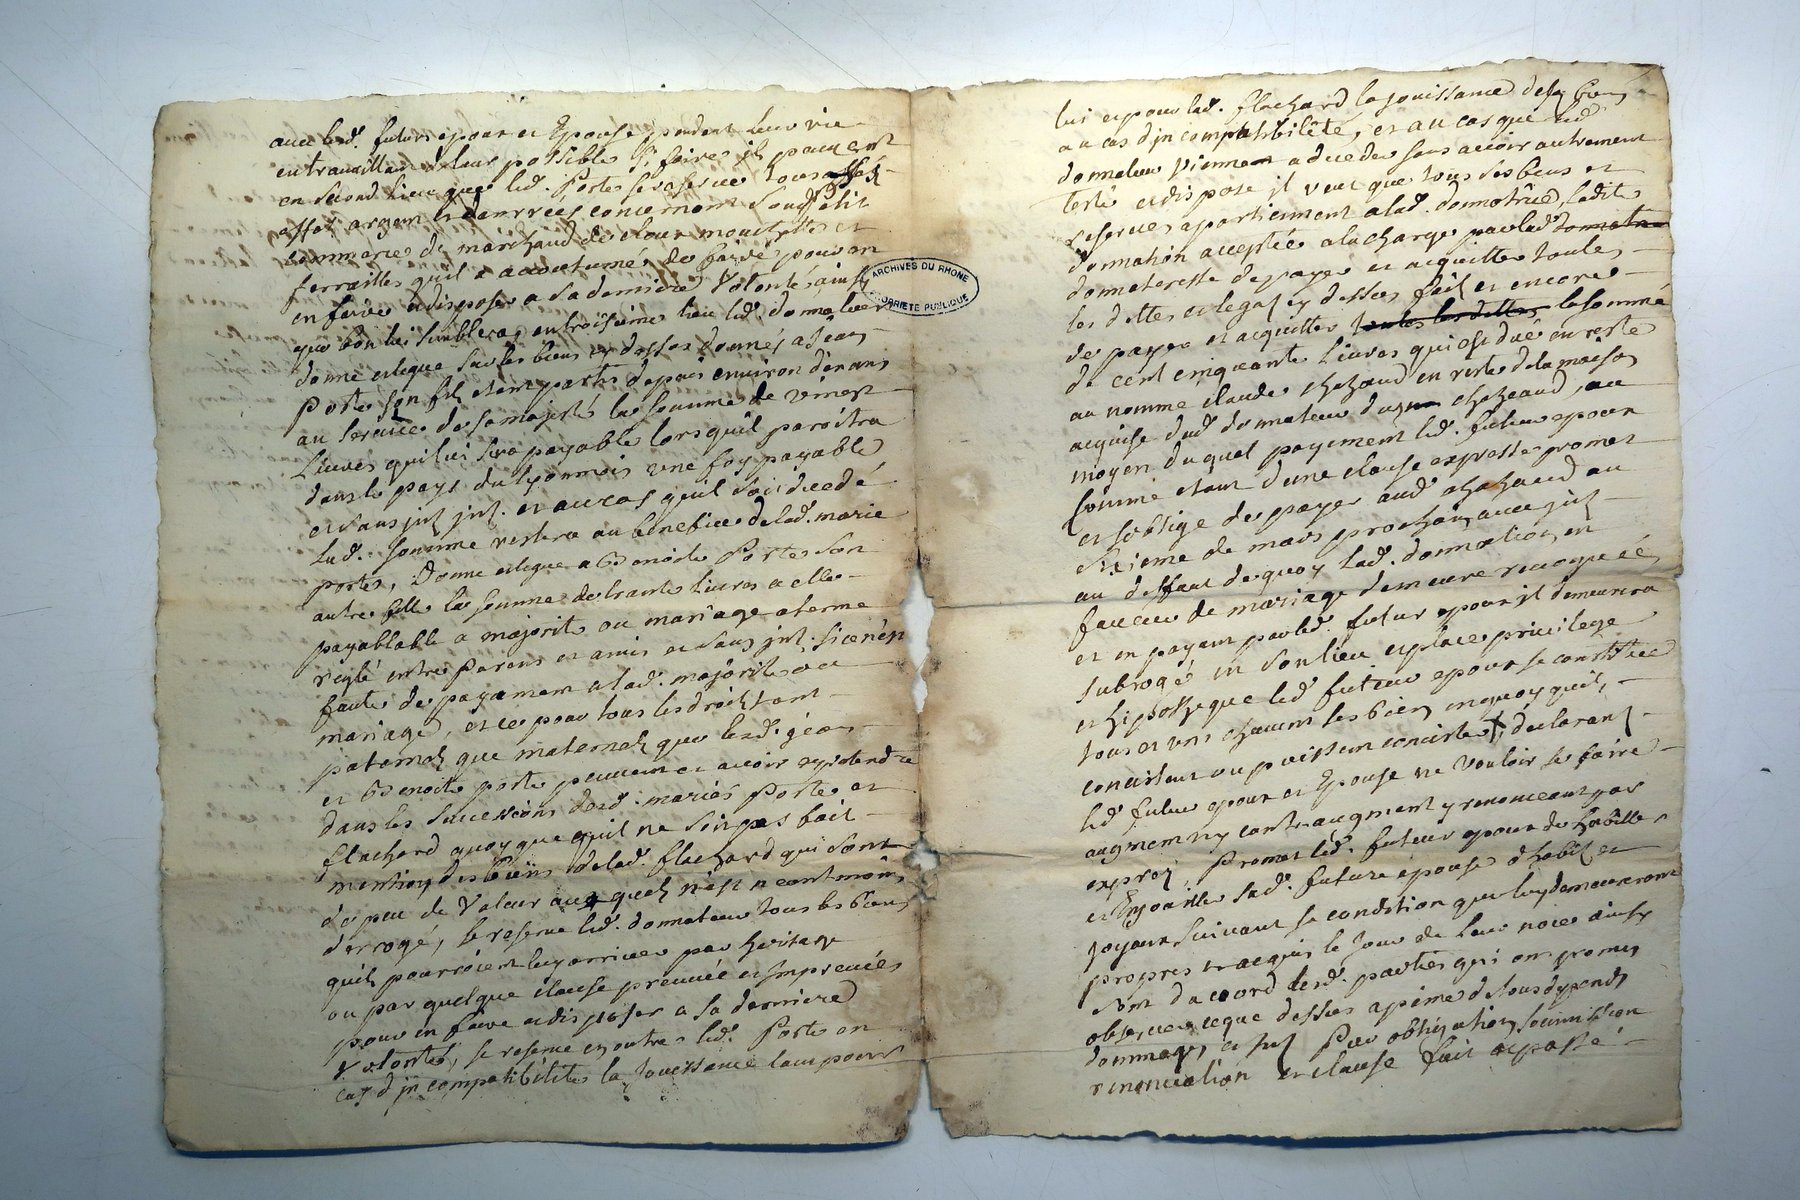 avec led. futurs epoux et Epouse pendant leur vie
en travaillant a leur possible si faire il peuvent
en second lieu que led. Porte se reserve tous
effet argent et danrrées concernant son petit
commerce de marchand de clour mouchettes et
ferrailles quil a accoutumé de faire pour en
en faire et disposer a sa derniere Volonté ainsy
que bon lui semblera, en troisieme lieu led. donnateur
donne et legue sur les biens cy dessus donnés a Jean
Porte son fils etant partis depuis environ dix ans
au service de sa majesté la somme de vingt
Livres qui lui sera payable lorsquil paroitra
dans le pays du lyonnois une foy payable
et sans jnt. jnt. et au cas quil soit decedé
lad. somme restera au benefice de lad. marie
porte, Donne et legue a Benoite Porte son
autre fille la somme de trante livres a elle
payablable a majorité ou mariage a terme
reglé entre Parens et amis et sans jnt. si ce n'est
faute de payement a lad. majorité ou
mariage, et ce pour tous les droits tant
paternels que maternels que lesd. jean
et Benoite porte peuvent et avoir et pretendre
dans les successions desd. mariés Porte et
flachard quoy que quil ne soit pas fait
mention des biens de lad. flachard qui sont
de peu de Valeur aux quels n'est neantmoins
derrogé, se reserve led. donnateur tous les biens
quils pourroient luy arriver par heritage
ou par quelque clause prevuée et impreveües
pour en faire et disposer a sa derniere
volonté, se reserve en outre led. Porte en
cas d'jncompatibilité la jouissance tant pour
ARCHIVES DU RHONE
PROPRIETE PUBLIQUE
lui et pour lad. flachard la jouissance des biens
au cas d'jncompatibilité, et au cas que led.
donnateur Vienne a deceder sans avoir autrement
testé et dispose il veut que tous ses biens et
reserves apartiennent a lad. donnatrice, ladite
donnation acceptée a la charge par lad. donnatr
donnateresse de payer et acquitter toutes
les dettes et legats cy dessus fait et encore
de payer et acquitter toutes les dettes la somme
de cent cinquante Livres qui est due en reste
au nomme claude chazaud en reste de la maison
acquise dud. donnateur chazaud, au
moyen duquel payement led. futur epoux
comme etant d'une clause expresse promet
et soblige de payer aud. chazaud au
sixieme de mars prochain avec jnt.
au deffaut de quoy lad. donnation en
faveur de mariage demeure revoquée,
et en payant par led. futur epoux il demeurera
subrogé en son lieu et place privilege
et hipotheque led. futur epoux se constitue
tous et uns chacuns ses biens en quoy quils
concistent ou puissent concister, declarant
led. futur epoux et Epouse ne vouloir se faire
augment ny contraugment y renonceant par
exprez, Promet led. futur epoux de habiller
et enjoailler sad. future epouse d'habit et
joyaux suivant sa condition que luy demeureront
propres et acquis le jour de leur noce ainsy
sont daccord lesd. parties qui ont promis
observer ce que dessus a peine de tous depends
dommages et jnt. Par obligation soumission
renonciation et clause fait et passé